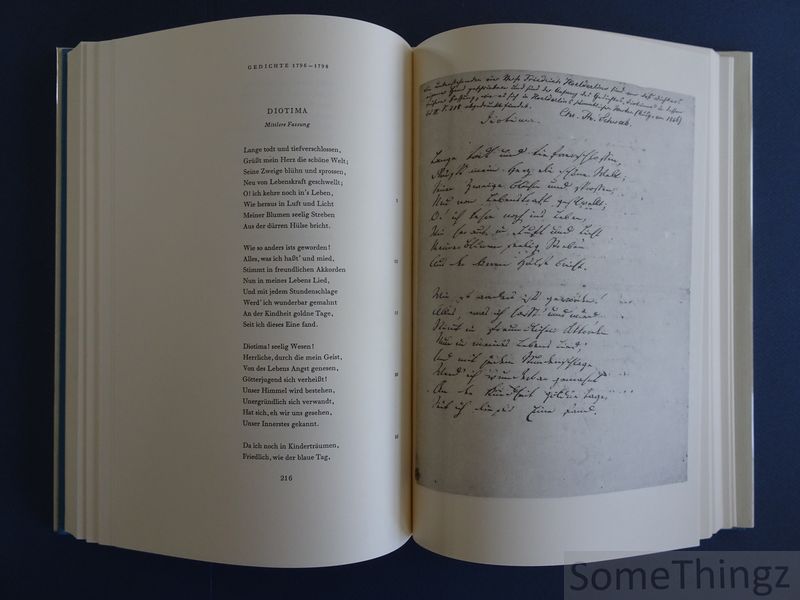 GEDICHTE 1796–1798
DIOTIMA
Mittlere Fassung
Lange todt und tiefverschlossen,
Grüßt mein Herz die schöne Welt;
Seine Zweige blühn und sprossen,
Neu von Lebenskraft geschwellt;
O! ich kehre noch in's Leben,
Wie heraus in Luft und Licht
Meiner Blumen seelig Streben
Aus der dürren Hülse bricht.
Wie so anders ists geworden!
Alles, was ich haßt' und mied,
Stimmt in freundlichen Akkorden
Nun in meines Lebens Lied,
Und mit jedem Stundenschlage
Werd' ich wunderbar gemahnt
An der Kindheit goldne Tage,
Seit ich dieses Eine fand.
Diotima! seelig Wesen!
Herrliche, durch die mein Geist,
Von des Lebens Angst genesen,
Götterjugend sich verheißt!
Unser Himmel wird bestehen,
Unergründlich sich verwandt,
Hat sich, eh wir uns gesehen,
Unser Innerstes gekannt.
Da ich noch in Kinderträumen,
Friedlich, wie der blaue Tag,
216
Diotima.
Lange todt und tiefverschlossen,
Grüßt mein Herz die schöne Welt;
Seine Zweige blühen und sprossen,
Neu von Lebenskraft geschwellt;
O! ich kehre noch ins Leben,
Wie heraus in Luft und Licht
Meiner Blumen seelig Streben
Aus der dürren Hülse bricht.
Wie so anders ists geworden!
Alles, was ich haßt' und mied
Stimmt in freundlichen Akkorden
Nun in meines Lebens Lied,
Und mit jedem Stundenschlage
Werd' ich wunderbar gemahnt
An der Kindheit goldne Tage,
Seit ich dieses Eine fand.
SomeThingz